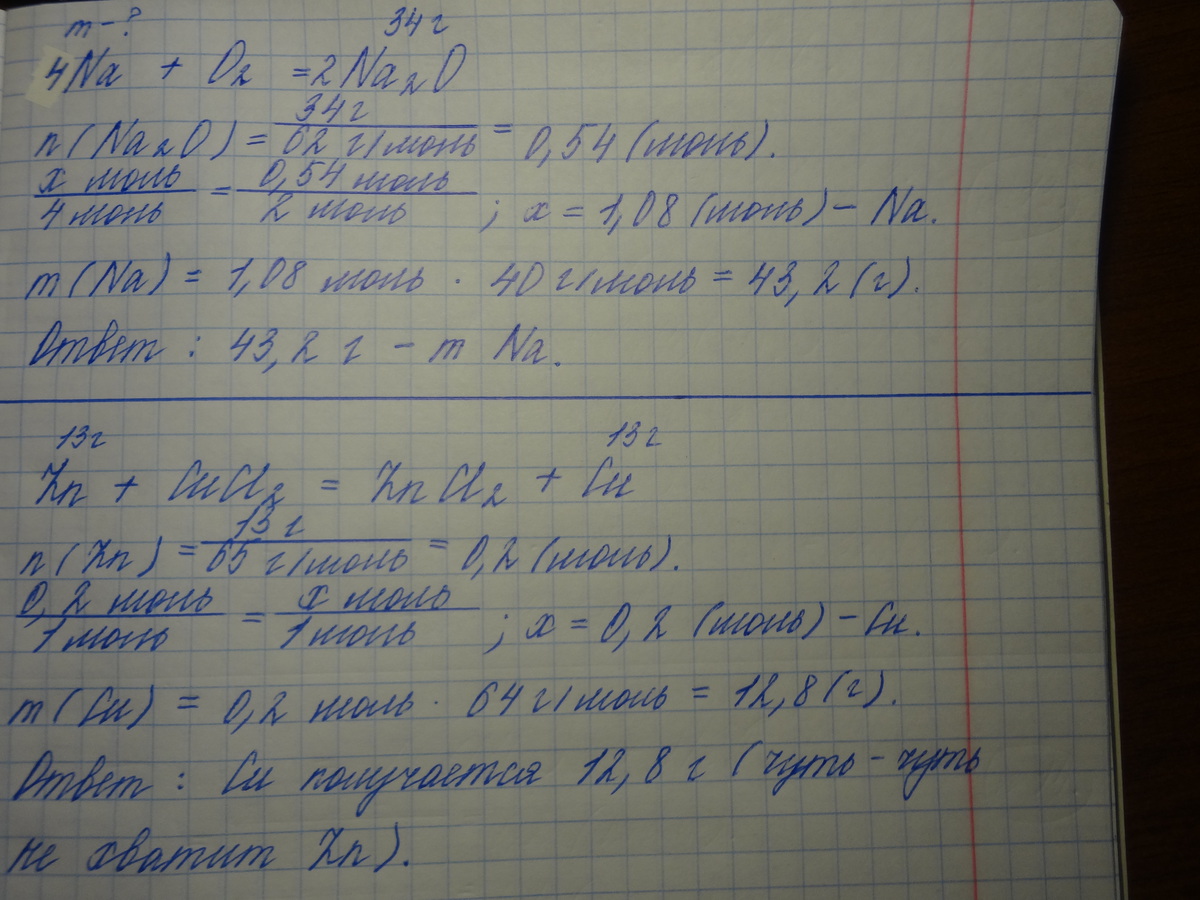 m - ? 34 г
4Na + O₂ = 2Na₂O
n(Na₂O) = 34 г / 62 г/моль = 0,54 (моль).
x моль / 4 моль = 0,54 моль / 2 моль ; x = 1,08 (моль) - Na.
m(Na) = 1,08 моль · 40 г/моль = 43,2 (г).
Ответ : 43,2 г - m Na.
13г 13г
Zn + CuCl₂ = ZnCl₂ + Cu
n(Zn) = 13 г / 65 г/моль = 0,2 (моль).
0,2 моль / 1 моль = x моль / 1 моль ; x = 0,2 (моль) - Cu.
m(Cu) = 0,2 моль · 64 г/моль = 12,8 (г).
Ответ : Cu получается 12,8 г (чуть-чуть
не хватит Zn).